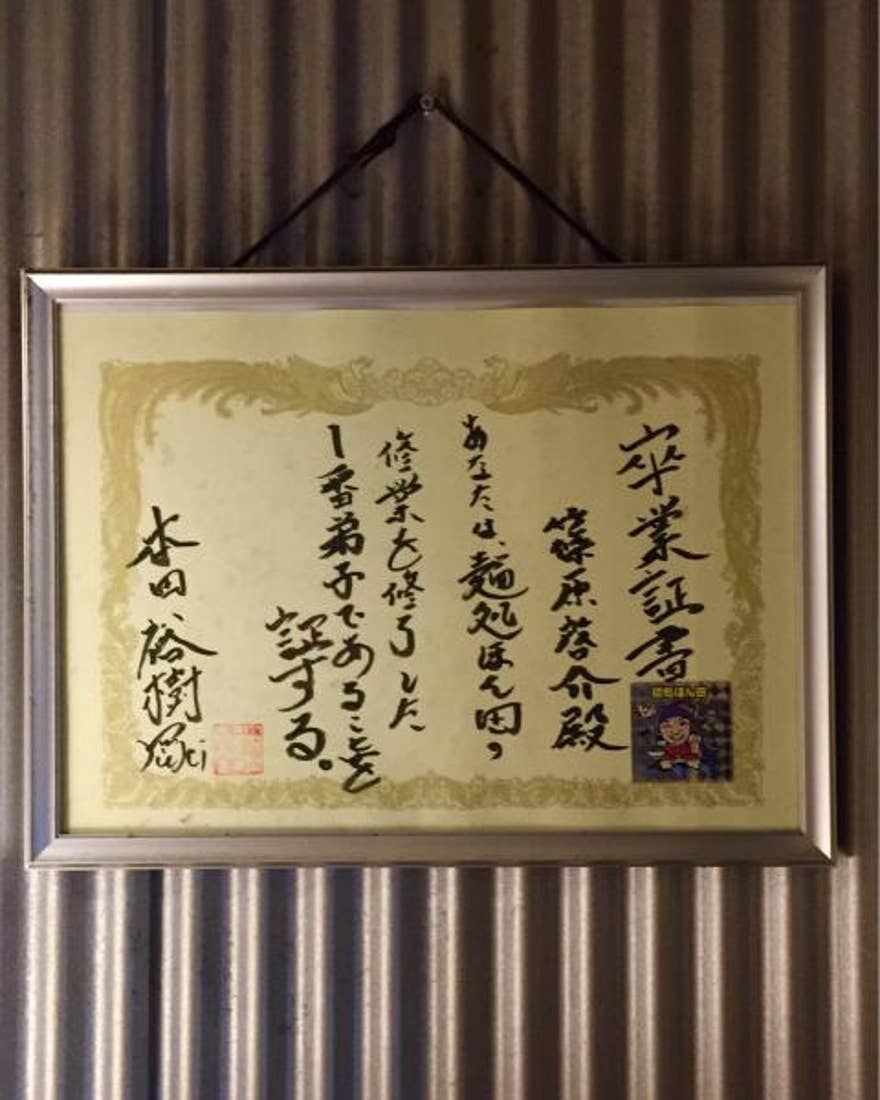 卒業証書
篠原啓介殿
あなたは、麺処ほん田の
修業を修了した
1番弟子であることを
証する。
本田裕樹
麺処ほん田